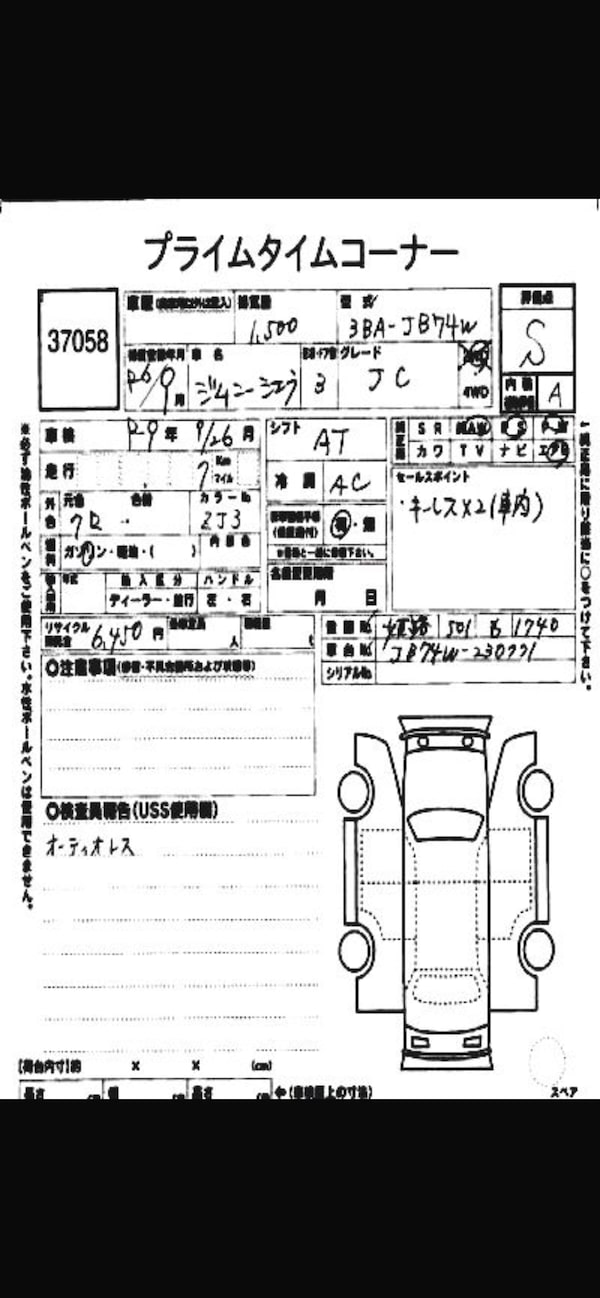 プライムタイムコーナー
37058
車歴
排気量
1,500
型式
3BA-JB74W
評価点
S
初度登録年月
R6/9月
車名
ジムニーシエラ
ドア形
3
グレード
JC
4WD
内装
A
車検
R9年 9/26月
シフト
AT
純正品
SR AW PS PW
カワ TV ナビ エアB
走行
7
Km
マイル
冷房
AC
セールスポイント
・キーレスX2(車内)
外色
元色
色替
カラーNo
ZJ3
燃料
ガソリン・軽油・( )
内装色
有・無
輸入車用
年式
輸入区分
ハンドル
ディーラー・並行
左・右
名義変更期限
月 日
リサイクル預託金
6,450円
乗車定員
人
積載量
t
登録No.
姫路 501 1740
車台No.
JB74W-230771
シリアルNo.
○注意事項
○検査員報告(USS使用欄)
オーディオレス
【荷台内寸】約 × × (cm)
長さ cm 幅 cm 高さ cm
スペア
※必ず油性ボールペンをご使用下さい。水性ボールペンは使用できません。
↑純正品に限り該当に○をつけて下さい。